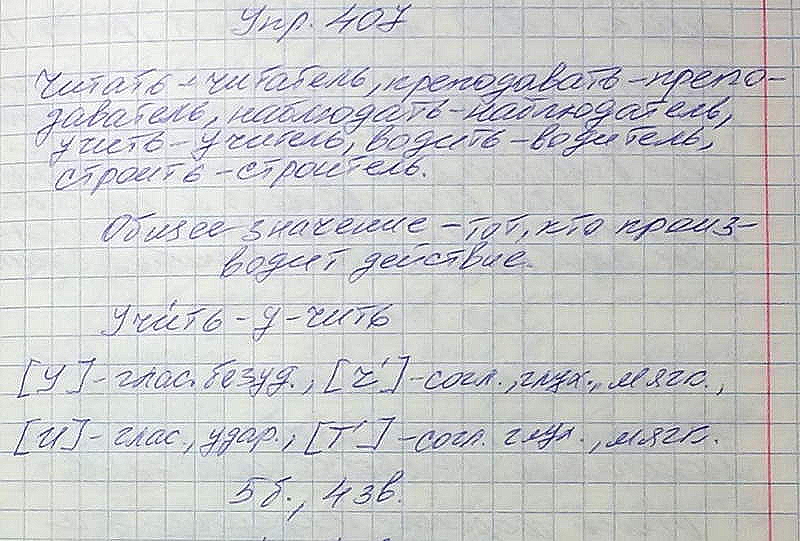 Упр. 407
Читать - читатель, преподавать - препо-
даватель, наблюдать - наблюдатель,
учить - учитель, водить - водитель,
строить - строитель.
Общее значение - тот, кто произ-
водит действие.
Учи́ть - у - чить
[У] - глас. безуд., [Ч'] - согл., глух., мягк.,
[И] - глас., удар., [Т'] - согл. глух., мягк.
5 б., 4 зв.